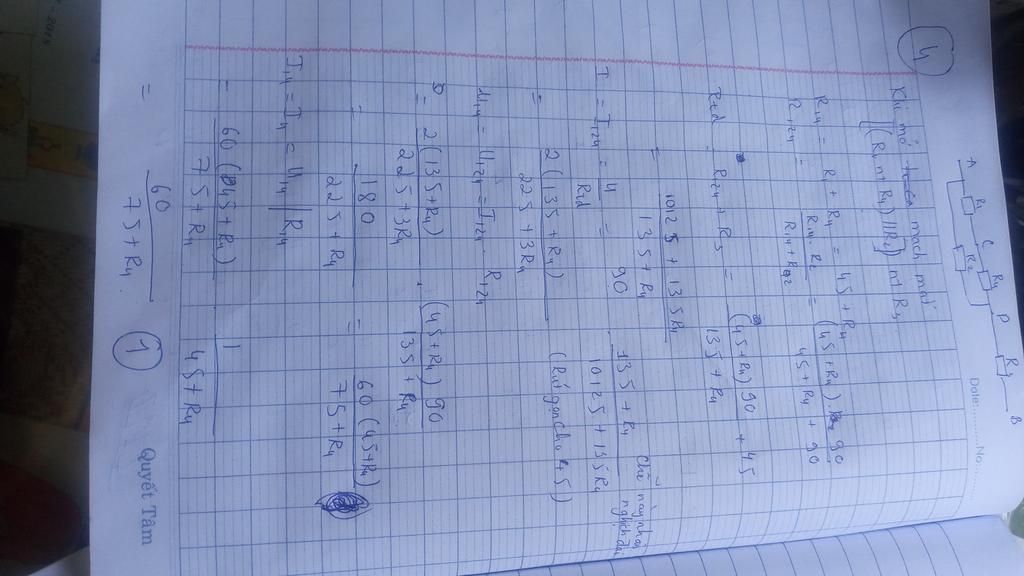 4
Date: ........ No: ....
A R1 C R4 D R3 B
R2
Khi mở mạch mới
[(R1 nt R4) // R2] nt R3
R14 = R1 + R4 = 45 + R4
R124 = R14 . R2 / R14 + R2 = (45 + R4) 90 / 45 + R4 + 90
Rtđ = R124 + R3 = (45 + R4) 90 / 135 + R4 + 45
= 10125 + 135R4 / 135 + R4
I = I124 = U / Rtđ = 90 . 135 + R4 / 10125 + 135R4
Chỗ này nhân nghịch đảo
= 2 (135 + R4) / 225 + 3R4 (Rút gọn cho 45)
U14 = U124 = I124 . R124
= 2 (135 + R4) / 225 + 3R4 . (45 + R4) 90 / 135 + R4
= 180 / 225 + R4 = 60 (45 + R4) / 75 + R4
I14 = I4 = U14 / R14
= 60 (45 + R4) / 75 + R4 . 1 / 45 + R4
= 60 / 75 + R4 1
Quyết Tâm